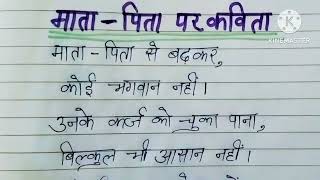 माता - पिता पर कविता
KINEMASTER
माता - पिता से बढ़कर,
कोई भगवान नहीं ।
उनके कर्ज को चुका पाना,
बिल्कुल भी आसान नहीं ।